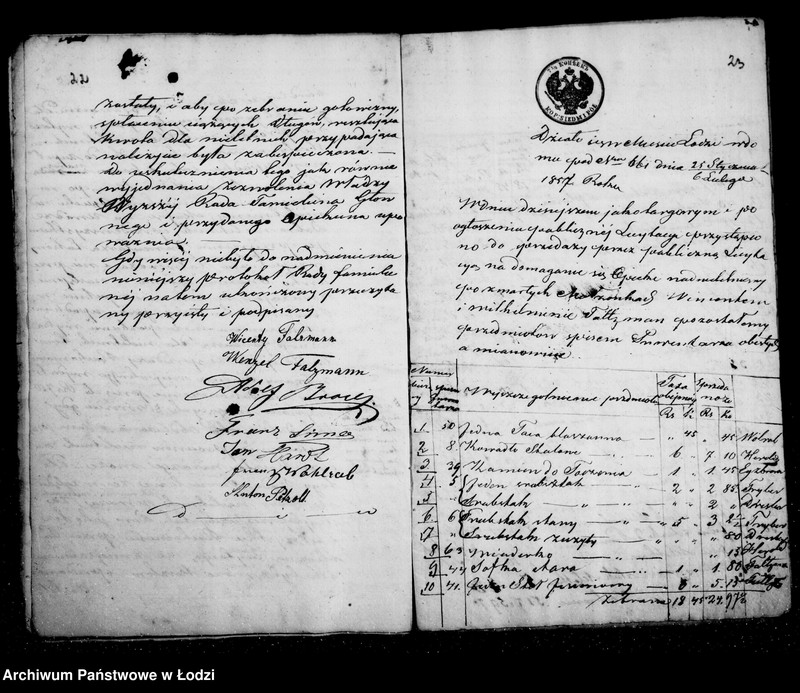 22
zostały, i aby po zebraniu gotowizny,
spłaceniu ciążących długów, resztująca
kwota dla nieletnich przypadająca
należycie była zabespieczona. —
Do uskutecznienia tego jak równie
wyjednania zezwolenia Władzy
Wyższej Rada familijna Głów
nego i przydanego Opiekuna upo
ważnia. —
Gdy więcej niebyło do nadmienienia
niniejszy protokół Rady familij
néj na tem ukończony przeczyta
ny przyjęty i podpisany
Wincenty Falzmann
Wenzel Falzmann
Franz Sima
Jan Herol
Franz Wohlrab
Anton Petzolt
23
7½ KOPIEEK
Działo się w Mieście Łodzi w do
mu pod Nrem 661 dnia 25 Stycznia / 6 Lutego
1857 Roku
W dniu dzisiejszem jako targowym i po
ogłoszeniu publicznéj Licytacyi przystąpio
no do sprzedaży przez publiczną Licyta
cyą na domaganie się Opieki nad nieletniemi
po zmarłych Małżonkach Wincentem
i Wilhelminie Faltzman pozostałemi
przedmiotów spisem Inwentarza objętych
a mianowicie.
Wyszczególnienie przedmiotów Rs K Rs Ko
1 50 Jedna Taca blaszanna — „ 45 „ 45 Wolrab
2 8 Kowadło Stalowe — 6 „ 7 10 Herolt
3 39 Kamień do Toczenia — 1 „ 1 45
4 5 Jeden Srubsztak — 2 „ 2 85
5 Srubsztak — „ „ 2 „
6 6 Srubsztak stary — „ 5 „ 3
7 „ Srubsztak zużyty — „ „ „ 80
8 63 Wiaderko — „ „ „ 15 Herolt
9 44 Sofka stara — 1 „ 1 80
10 41 Jeden Stół — 3 „ 5 15
Zebrano 18 45 24 97½
Archiwum Państwowe w Łodzi